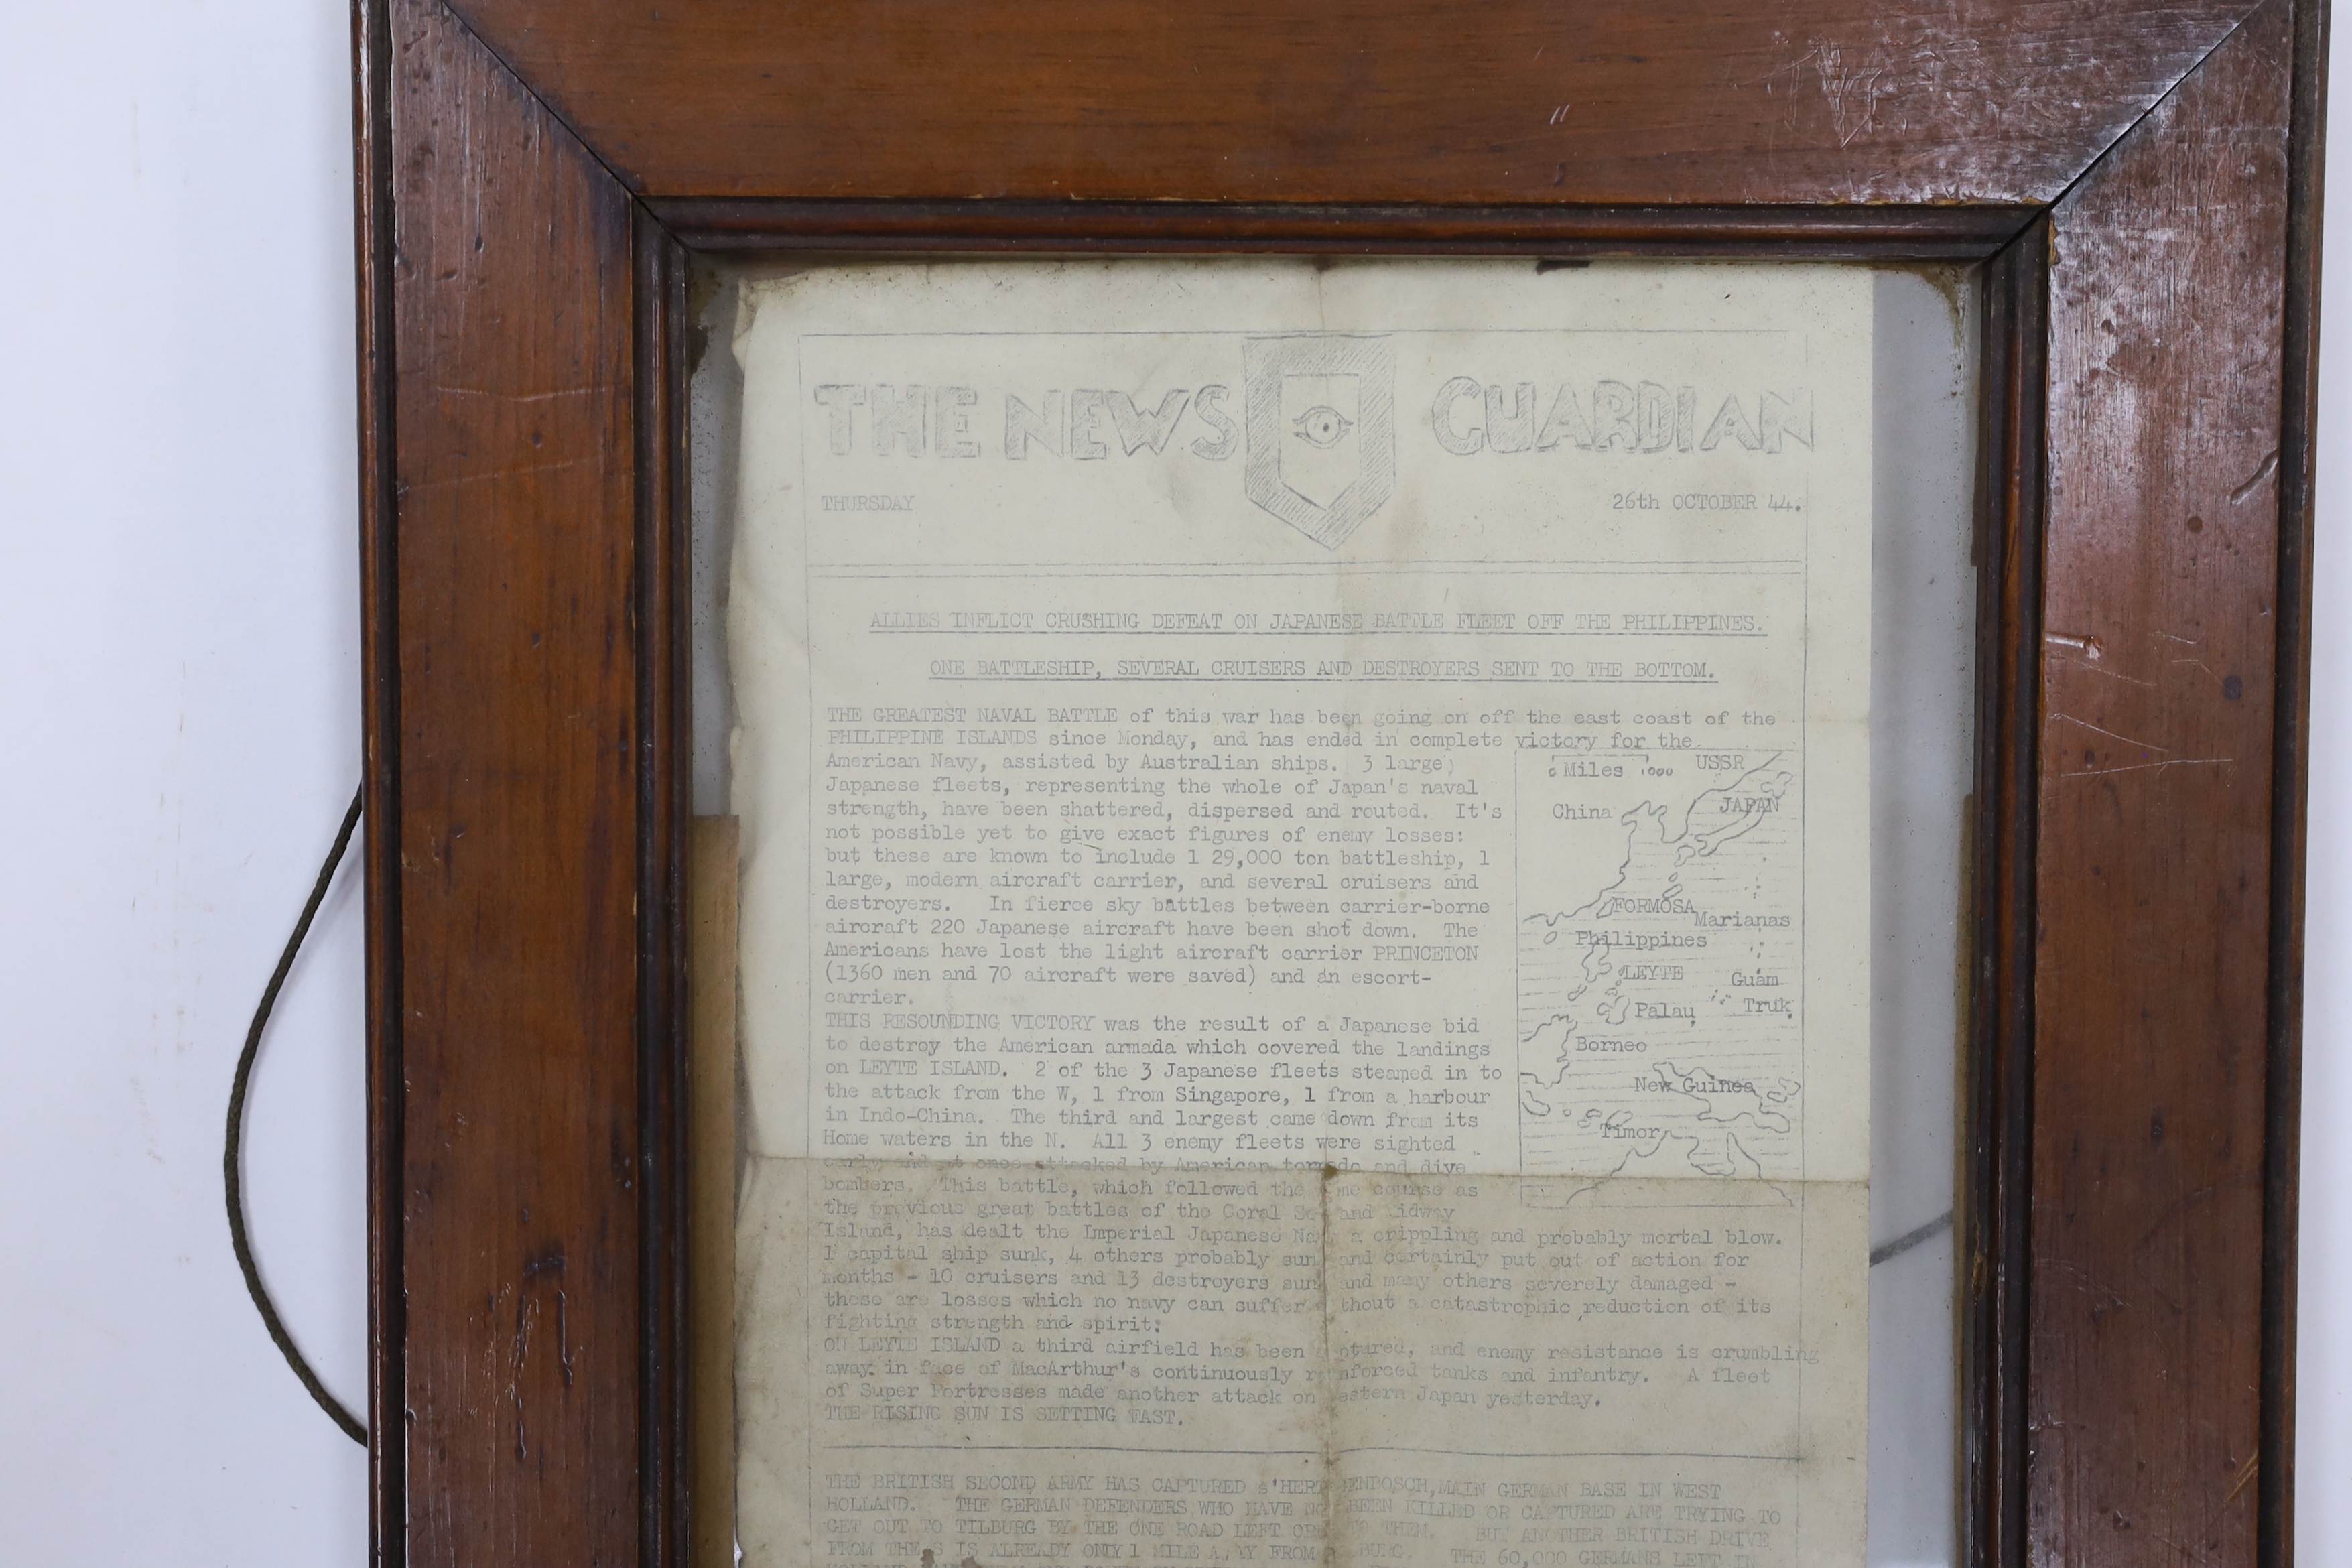 THE NEWS GUARDIAN
THURSDAY 26th OCTOBER 44.
ALLIES INFLICT CRUSHING DEFEAT ON JAPANESE BATTLE FLEET OFF THE PHILIPPINES.
ONE BATTLESHIP, SEVERAL CRUISERS AND DESTROYERS SENT TO THE BOTTOM.
THE GREATEST NAVAL BATTLE of this war has been going on off the east coast of the
PHILIPPINE ISLANDS since Monday, and has ended in complete victory for the
American Navy, assisted by Australian ships. 3 large
Japanese fleets, representing the whole of Japan's naval
strength, have been shattered, dispersed and routed. It's
not possible yet to give exact figures of enemy losses:
but these are known to include 1 29,000 ton battleship, 1
large, modern aircraft carrier, and several cruisers and
destroyers. In fierce sky battles between carrier-borne
aircraft 220 Japanese aircraft have been shot down. The
Americans have lost the light aircraft carrier PRINCETON
(1360 men and 70 aircraft were saved) and an escort-
carrier.
THIS RESOUNDING VICTORY was the result of a Japanese bid
to destroy the American armada which covered the landings
on LEYTE ISLAND. 2 of the 3 Japanese fleets steamed in to
the attack from the W, 1 from Singapore, 1 from a harbour
in Indo-China. The third and largest came down from its
Home waters in the N. All 3 enemy fleets were sighted
early and at once attacked by American torpedo and dive
bombers. This battle, which followed the me course as
the previous great battles of the Coral Se and idway
Island, has dealt the Imperial Japanese Na a crippling and probably mortal blow.
1 capital ship sunk, 4 others probably sun and certainly put out of action for
months - 10 cruisers and 13 destroyers sun and many others severely damaged -
these are losses which no navy can suffer thout a catastrophic reduction of its
fighting strength and spirit:
ON LEYTE ISLAND a third airfield has been ptured, and enemy resistance is crumbling
away in face of MacArthur's continuously r nforced tanks and infantry. A fleet
of Super Fortresses made another attack on estern Japan yesterday.
THE RISING SUN IS SETTING FAST.
0 Miles 1000 USSR
China JAPAN
FORMOSA
Marianas
Philippines
LEYTE Guam
Palau Truk
Borneo
New Guinea
Timor
THE BRITISH SECOND ARMY HAS CAPTURED s'HERT ENBOSCH, MAIN GERMAN BASE IN WEST
HOLLAND. THE GERMAN DEFENDERS WHO HAVE NO BEEN KILLED OR CAPTURED ARE TRYING TO
GET OUT TO TILBURG BY THE ONE ROAD LEFT OP TO THEM. BUT ANOTHER BRITISH DRIVE
FROM THE S IS ALREADY ONLY 1 MILE AWAY FROM BURG. THE 60,000 GERMANS LEFT IN